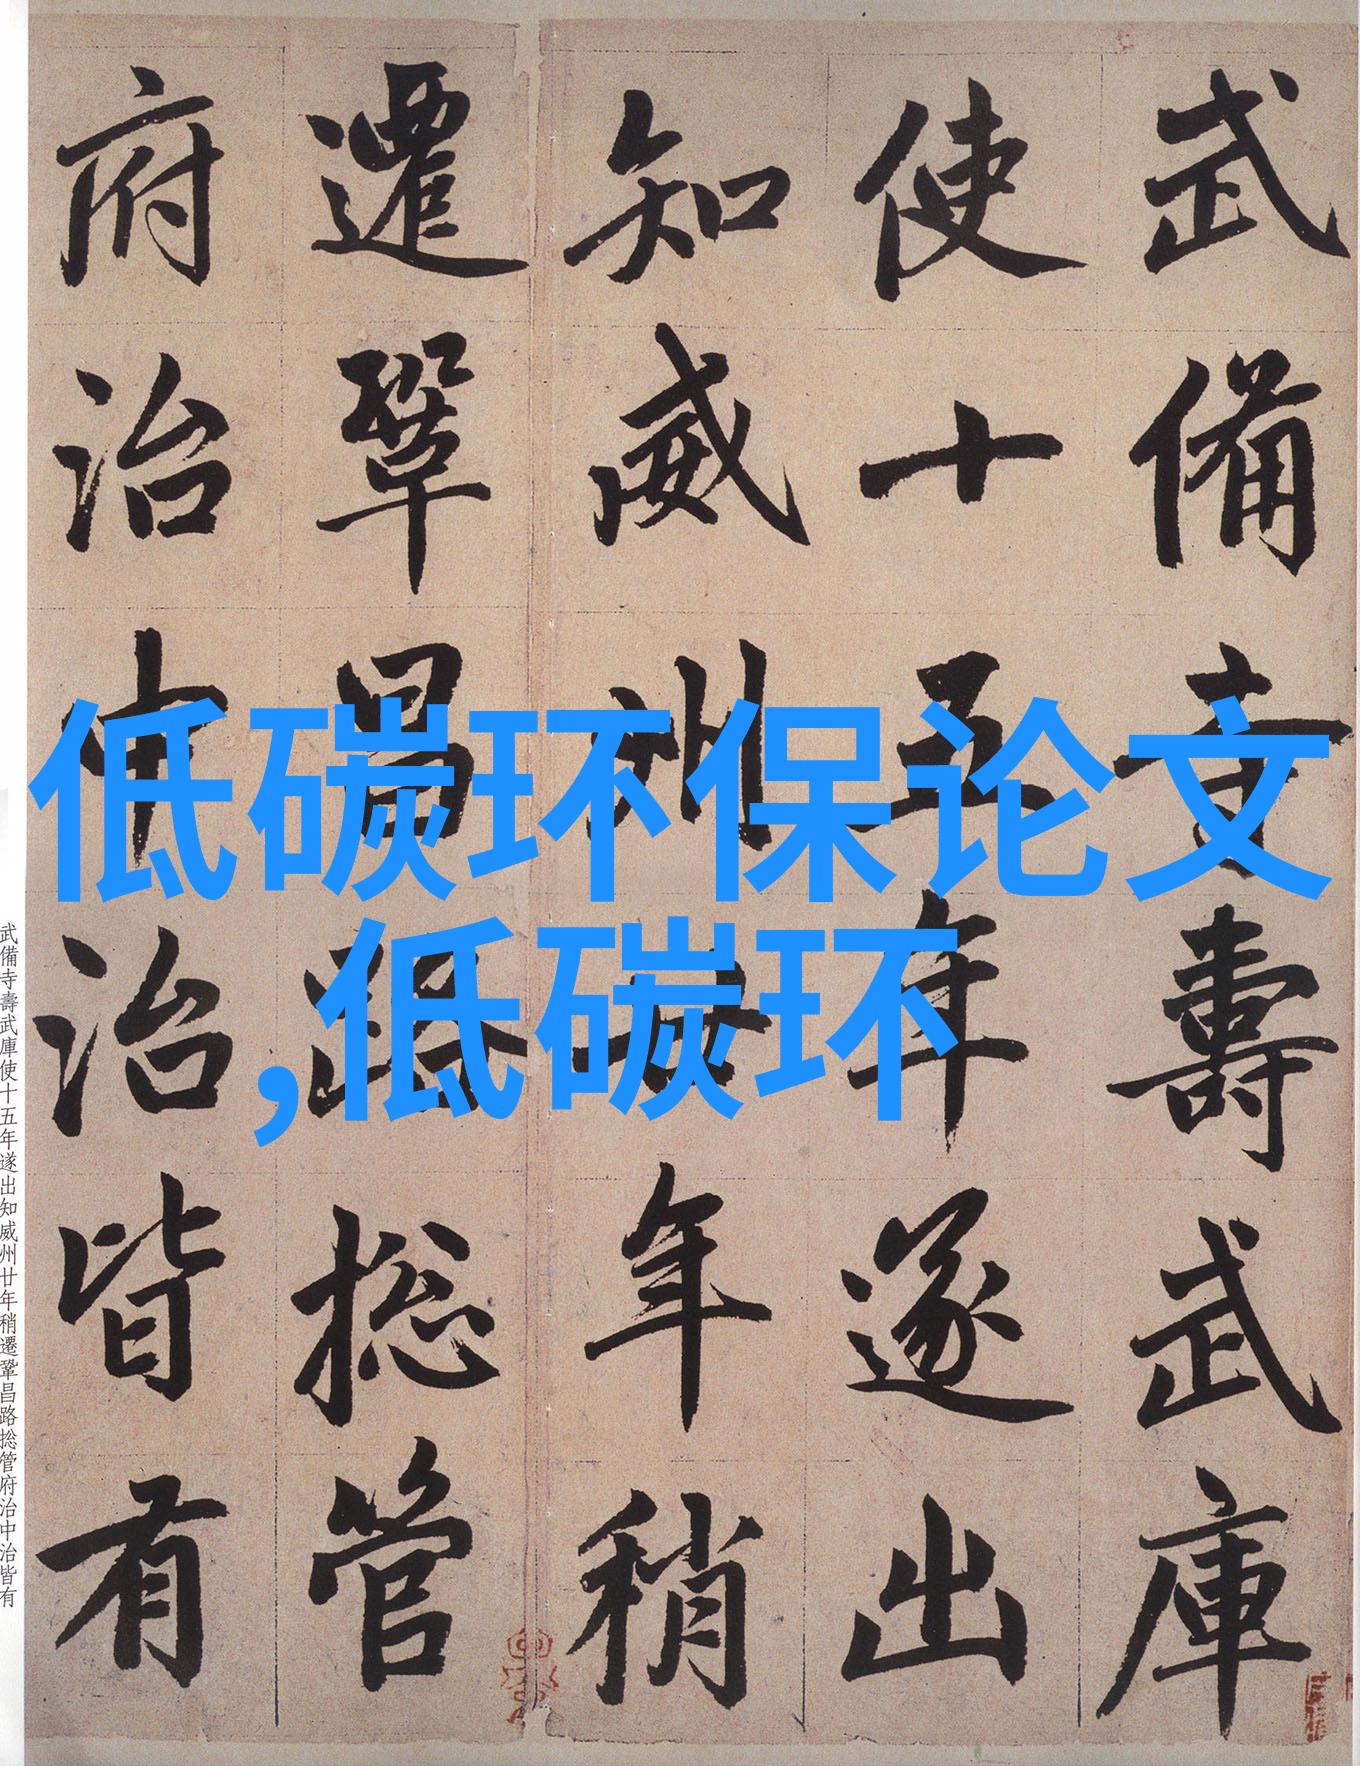 武備寺壽武庫
使十五年遂出
知威州廿年稍
遷鞏昌路捴管
府治中治皆有
低碳环保论文
,低碳环
武備寺壽武庫使十五年遂出知威州廿年稍遷鞏昌路捴管府治中治皆有